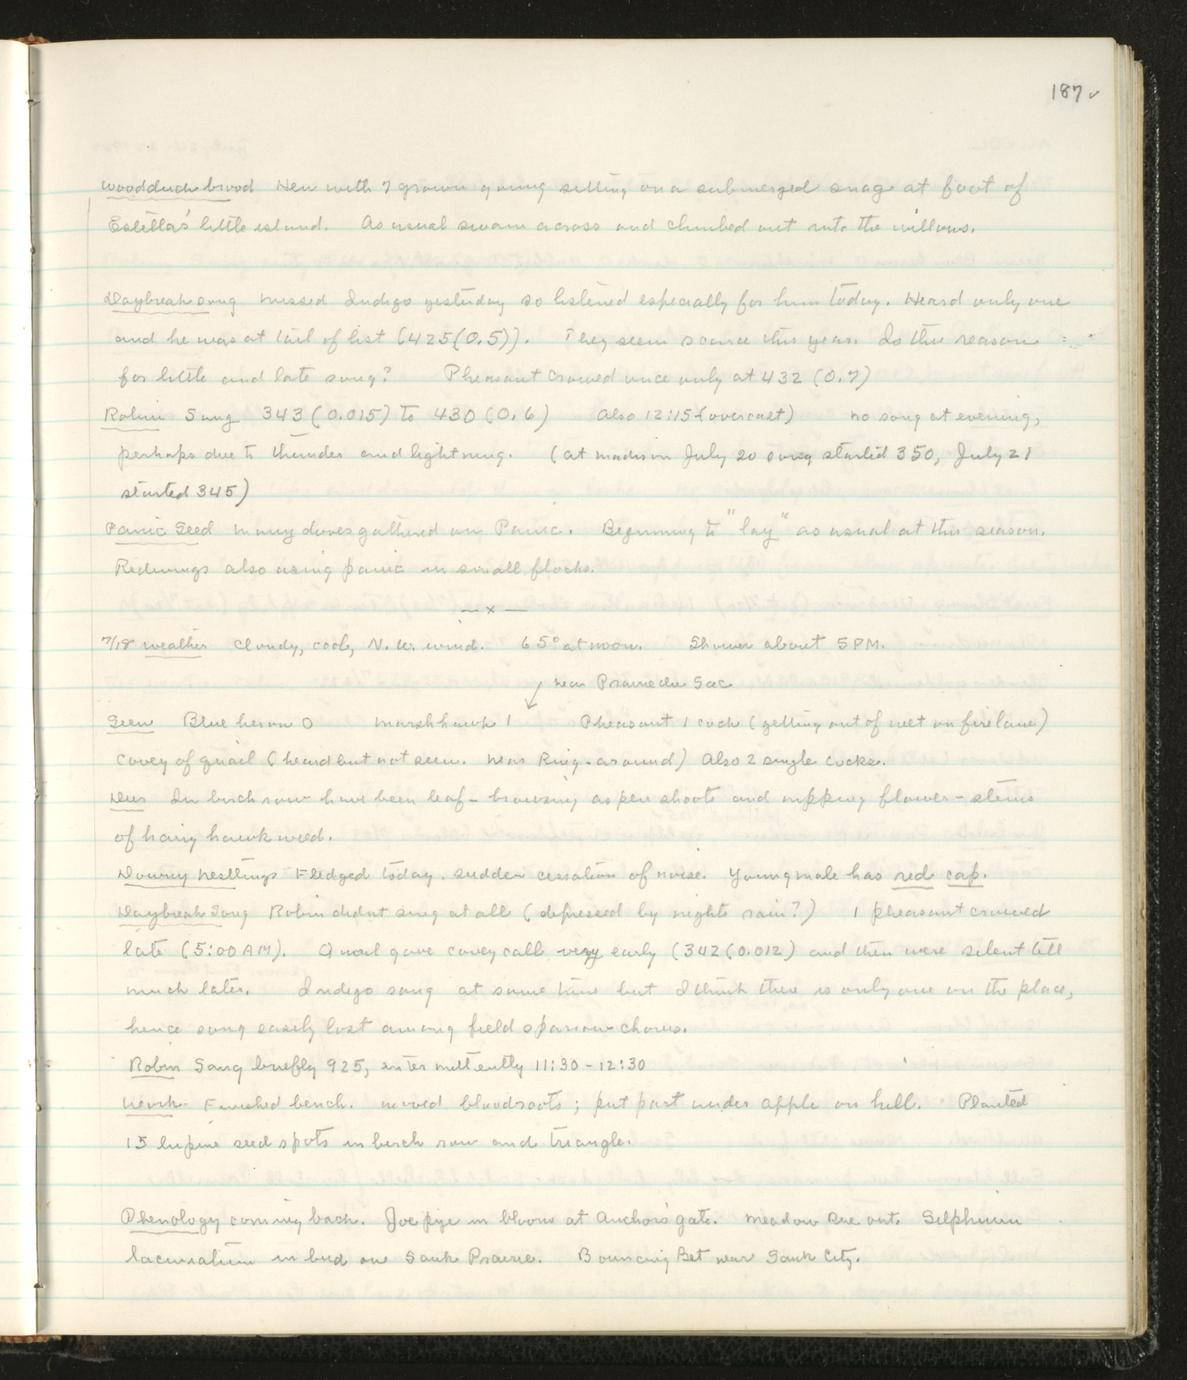 187 ✓
Woodduck brood Hen with 7 grown young sitting on a submerged snag at foot of
Estella's little island. As usual swam across and climbed out into the willows.
Daybreak Song Missed Indigo yesterday so listened especially for him today. Heard only one
and he was at tail of list (425(0.5)). They seem scarce this year. Is this reason
for little and late song? Pheasant crowed once only at 432 (0.7)
Robin Song 343 (0.015) to 430 (0.6) Also 12:15 (overcast) no song at evening,
perhaps due to thunder and lightning. (at Madison July 20 song started 350, July 21
started 345)
Panic Seed Many doves gathered on Panic. Beginning to "lay" as usual at this season.
Redwings also using panic in small flocks.
— x —
7/18 Weather Cloudy, cool, N.W. wind. 65° at noon. Shower about 5 PM.
near Prairie du Sac
Seen Blue heron 0 Marsh hawk 1 Pheasant 1 cock (getting out of wet on fire lane)
Covey of quail (heard but not seen. Near Ring-around) Also 2 single cocks.
Deer In birch row have been leaf-browsing aspen shoots and nipping flower-stems
of hairy hawkweed.
Downy Nestlings Fledged today. Sudden cessation of noise. Young male has red cap.
Daybreak Song Robin didnt sing at all (depressed by nights rain?) 1 pheasant crowed
late (5:00 AM). Quail gave covey call very early (342 (0.012) and then were silent till
much later. Indigo sang at some time but I think there is only one on the place,
hence song easily lost among field sparrow chorus.
Robin Sang briefly 925, intermittently 11:30 - 12:30
Work Finished bench. Moved bloodroots; put part under apple on hill. Planted
15 lupine seed spots in birch row and triangle.
Phenology coming back. Joe pye in bloom at Anchor's gate. Meadow Rue out. Silphium
laciniatum in bud on Sauk Prairie. Bouncing Bet near Sauk City.